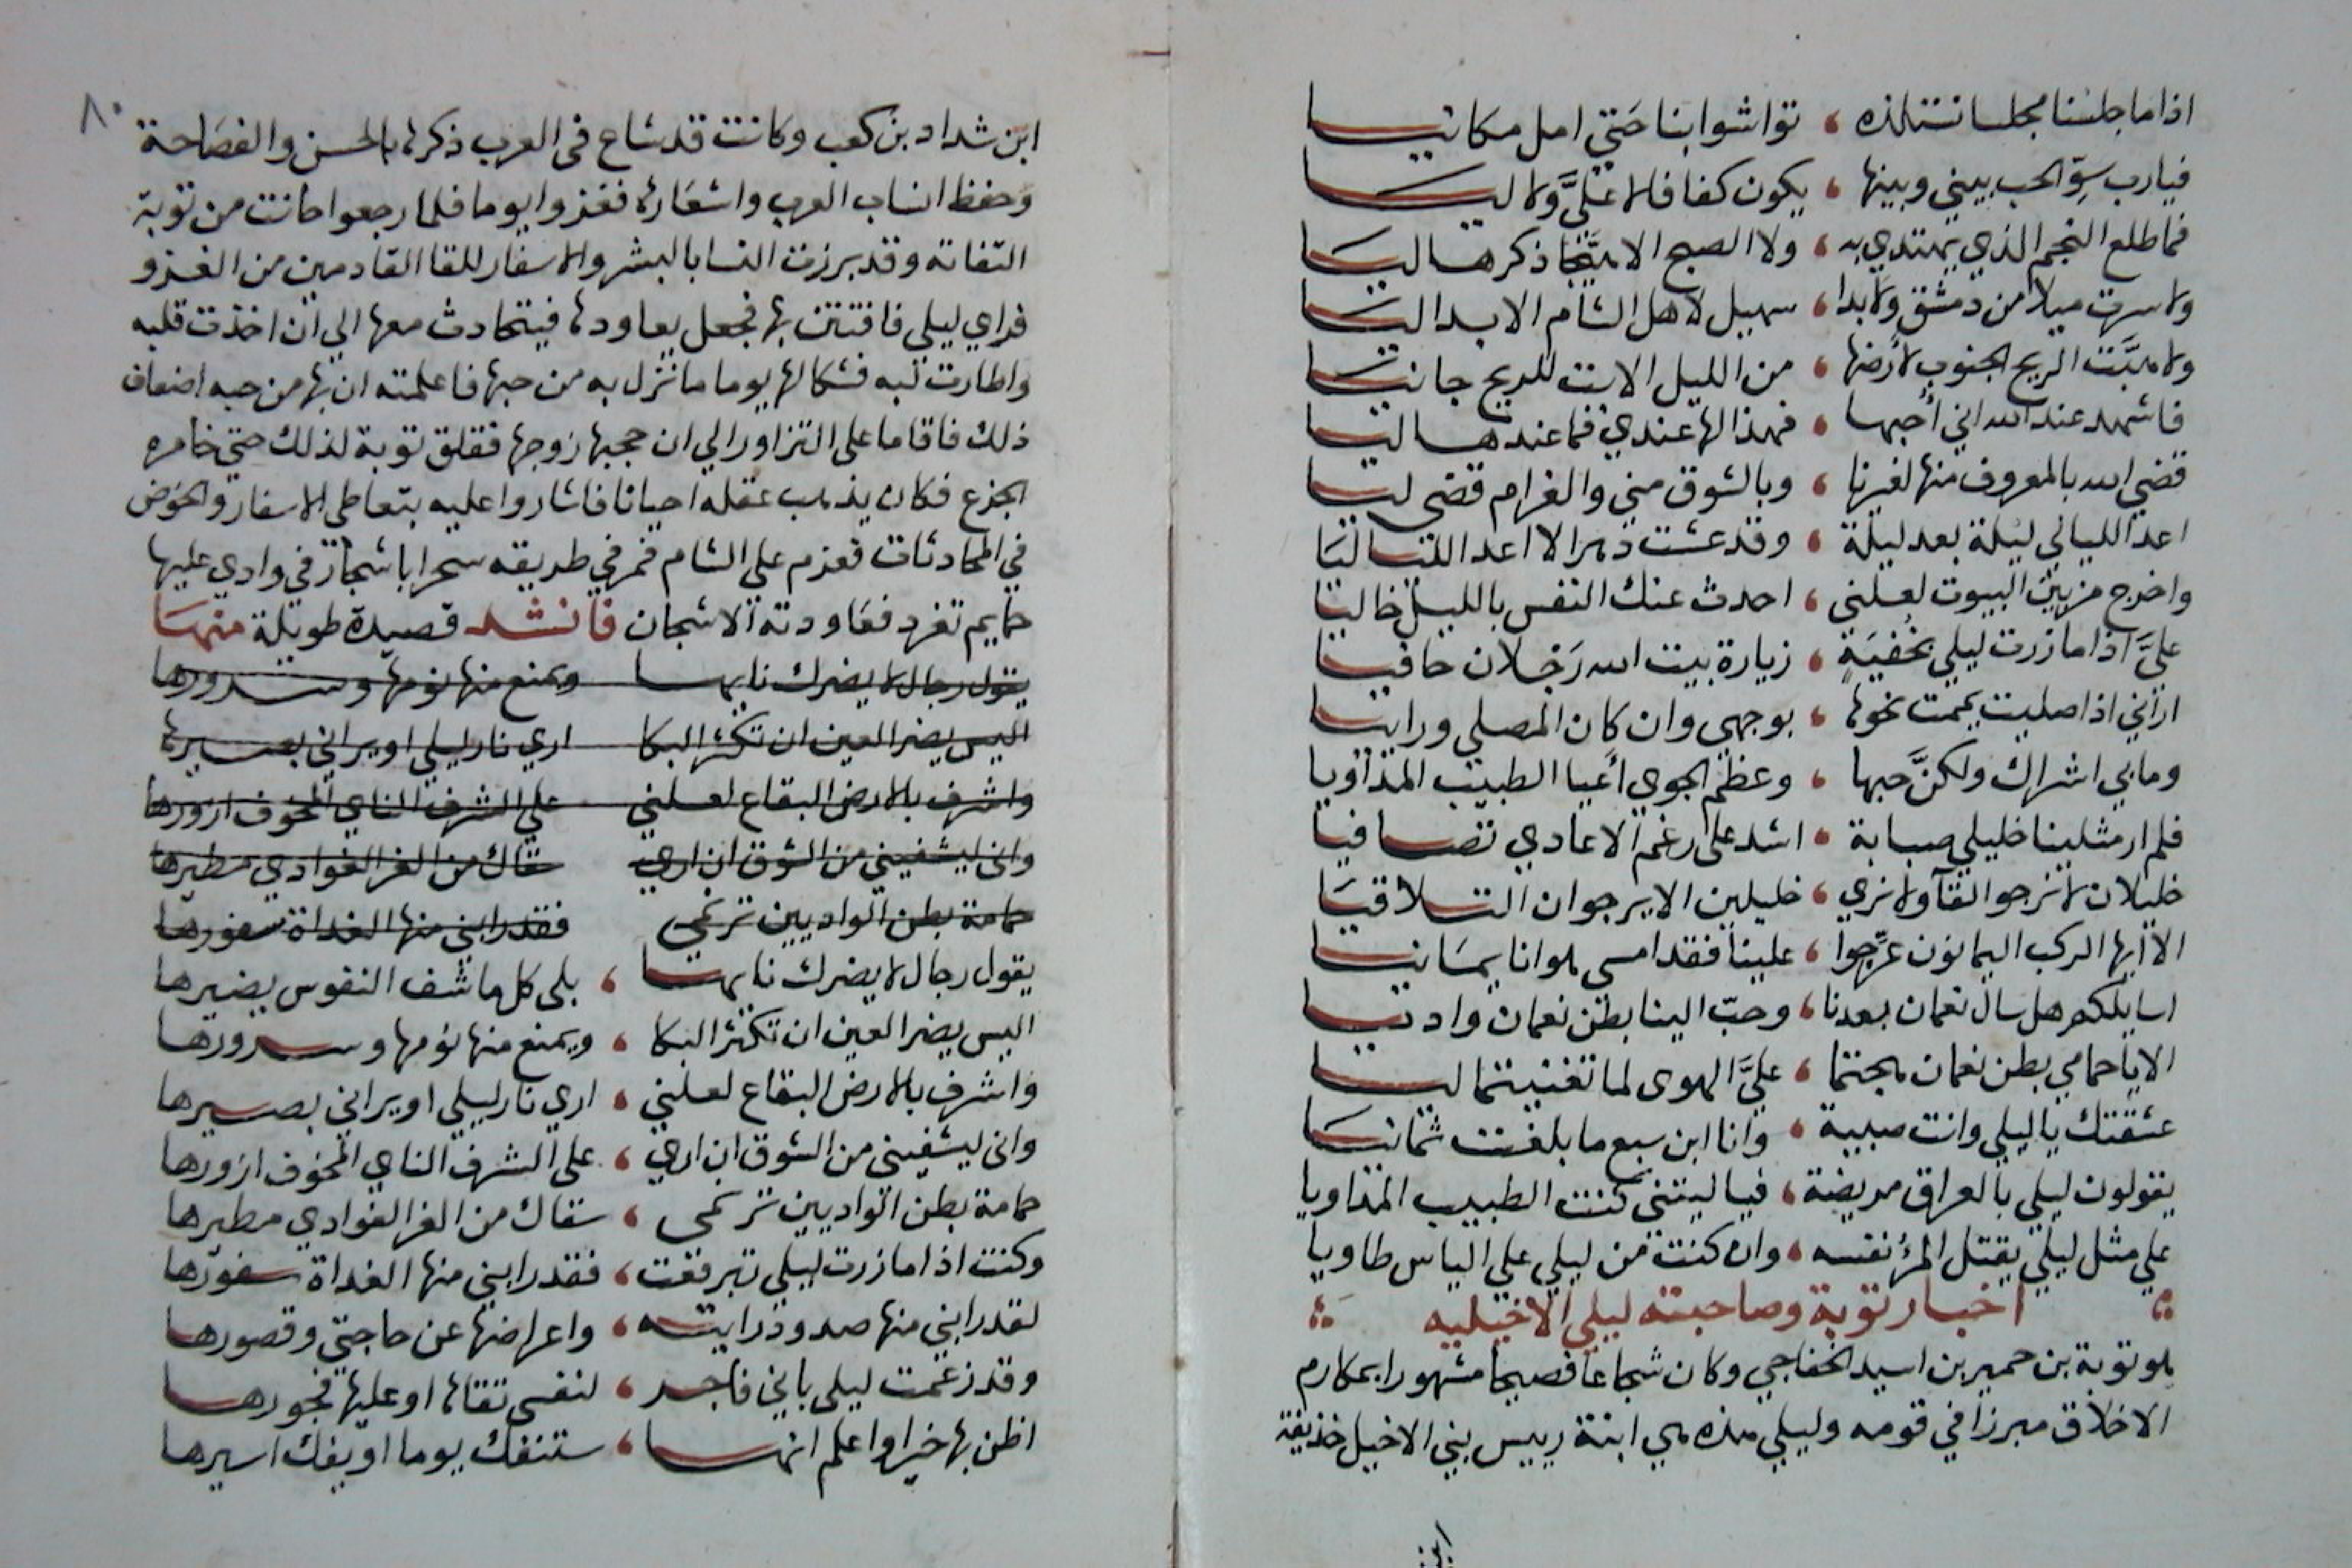 اذا ما جلسنا مجلسا نستلذه ، تواشوا بنا حتي امل مكانيا
فيارب سوّ الحب بيني وبينها ، يكون كفافا لا عليَّ ولا ليا
فما طلع النجم الذي يهتدي به ، ولا الصبح الا هيّجا ذكرها ليا
ولا سرت ميلا من دمشق ولا بدا ، سهيل لاهل الشام الا بدا ليا
ولا هبَّت الريح الجنوب لارضها ، من الليل الا بت للريح جانيا
فاشهد عند الله اني أحبها ، فهذا لها عندي فما عندها ليا
قضي الله بالمعروف منها لغيرنا ، وبالشوق مني والغرام قضي ليا
اعد الليالي ليلة بعد ليلة ، وقد عشت دهرا لا اعد اللياليا
واخرج من بين البيوت لعلني ، احدث عنك النفس بالليل خاليا
عليَّ اذا ما زرت ليلي بخفية ، زيارة بيت الله رجلان حافيا
اراني اذا صليت يممت نحوها ، بوجهي وان كان المصلي ورايا
وما بي اشراك ولكنَّ حبها ، وعظم الجوي أعيا الطبيب المداويا
فلم ار مثلينا خليلي صبابة ، اشد علي رغم الاعادي تصافيا
خليلان لا نرجوا لقآ ولا نري ، خليلين الا يرجوان التلاقيا
الا ايها الركب اليمانون عرّجوا ، علينا فقد امسي هوانا يمانيا
اسايلكم هل سال نعمان بعدنا ، وحبّ الينا بطن نعمان واديا
الا يا حمامي بطن نعمان هجتما ، عليَّ الهوى لما تغنيتما ليا
عشقتك يا ليلي وانت صبية ، وانا ابن سبع ما بلغت ثمانيا
يقولون ليلي بالعراق مريضة ، فيا ليتني كنت الطبيب المداويا
علي مثل ليلي يقتل المرؤ نفسه ، وان كنت من ليلي علي الياس طاويا
اخبار توبة وصاحبته ليلي الاخيليه
هو توبة بن حمير بن اسيد الخفاجي وكان شجاعا فصيحا مشهورا بمكارم
الاخلاق مبرزا في قومه وليلي هذه هي ابنة رييس بني الاخيل حذيفة
ابن
٨٠
ابن شداد بن كعب وكانت قد شاع في العرب ذكرها بالحسن والفصاحة
وحفظ انساب العرب واشعاره فغزوا يوما فلما رجعوا حانت من توبة
التفاتة وقد برزت النسا بالبشر والاسفار للقا القادمين من الغزو
فراي ليلي فافتتن بها فجعل يعاودها فيتحادث معها الي ان اخذت قلبه
واطارت لبه فشكا لها يوما ما نزل به من حبها فاعلمته ان بها من حبه اضعاف
ذلك فاقاما علي التزاور الي ان حجبها زوجها فقلق توبة لذلك حتي خامره
الجزع فكان يذهب عقله احيانا فاشاروا عليه بتعاطي الاسفار والخوض
في المحادثات فعزم علي الشام فمر في طريقه سحرا باشجار في وادي عليها
حمايم تغرد فعاودته الاشجان فانشد قصيدة طويلة منها
يقول رجال لا يضرك نايها ويمنع منها نومها وسرورها
اليس يضر العين ان تكثر البكا اري نار ليلي او يراني بصيرها
واشرف بالارض البقاع لعلني علي الشرف الناي المخوف ازورها
واني ليشفيني من الشوق ان اري سقاك من الغر الغوادي مطيرها
حمامة بطن الواديين ترنمي فقد رابني منها الغداة سفورها
يقول رجال لا يضرك نايها ، بلي كل ما شف النفوس يضيرها
اليس يضر العين ان تكثر البكا ، ويمنع منها نومها وسرورها
واشرف بالارض البقاع لعلني ، اري نار ليلي او يراني بصيرها
واني ليشفيني من الشوق ان اري ، علي الشرف الناي المخوف ازورها
حمامة بطن الواديين ترنمي ، سقاك من الغر الغوادي مطيرها
وكنت اذا ما زرت ليلي تبرقعت ، فقد رابني منها الغداة سفورها
لقد رابني منها صدود رايته ، واعراضها عن حاجتي وقصورها
وقد زعمت ليلي باني فاجر ، لنفسي تقاها او عليها فجورها
اظن بها خيرا واعلم انها ، ستنفك يوما او يفك اسيرها